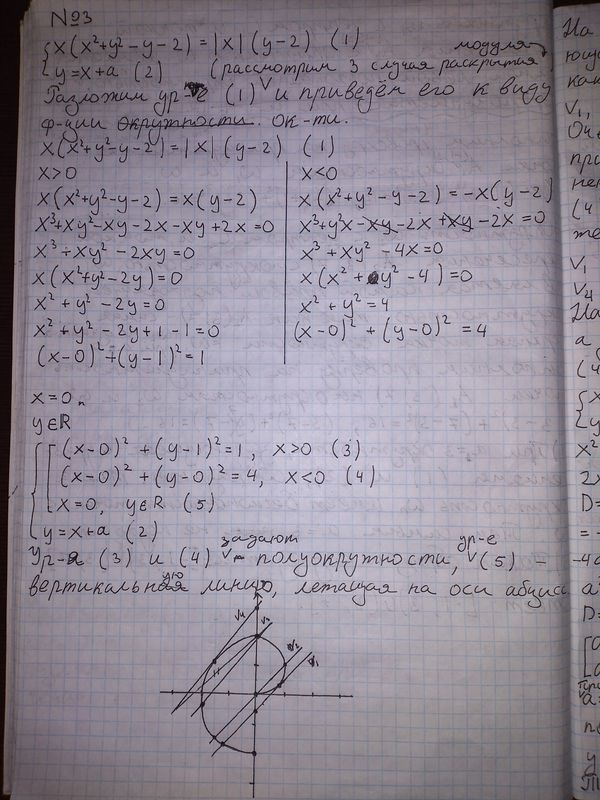 №3
{ x(x²+y²-y-2) = |x|(y-2) (1)
{ y=x+a (2) (рассмотрим 3 случая раскрытия модуля)
Разложим ур-е (1) и приведём его к виду
ф-ции окружности. ок-ти.
x(x²+y²-y-2) = |x|(y-2) (1)
x>0
x(x²+y²-y-2) = x(y-2)
x³+xy²-xy-2x-xy+2x=0
x³+xy²-2xy=0
x(x²+y²-2y)=0
x²+y²-2y=0
x²+y²-2y+1-1=0
(x-0)²+(y-1)²=1
x<0
x(x²+y²-y-2) = -x(y-2)
x³+y²x-xy-2x+xy-2x=0
x³+xy²-4x=0
x(x²+y²-4)=0
x²+y²=4
(x-0)²+(y-0)²=4
x=0
y∈ℝ
(x-0)²+(y-1)²=1, x>0 (3)
(x-0)²+(y-0)²=4, x<0 (4)
x=0, y∈ℝ (5)
y=x+a (2)
Ур-я (3) и (4) задают полуокружности, ур-е (5) -
вертикальную линию, лежащая на оси абцисс
V₄
V₃
V₂
V₁
На
ющу
как
V₁,
при
нен
(4
же
V₁
V₄
На
a
(4
{x
{y
x²
2x
D=
=-
-4a
a²
D=
a=
по
y